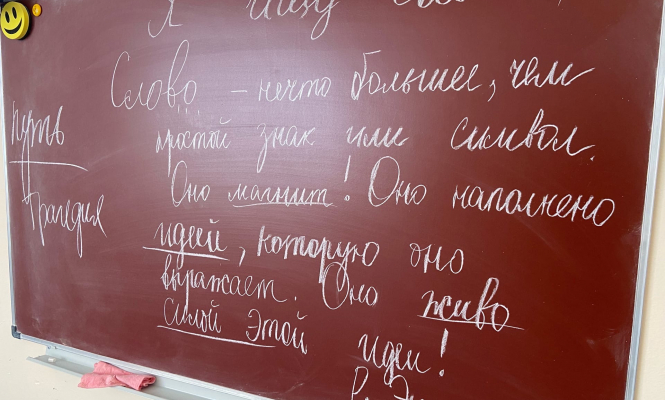 Я ищу
Слово – нечто большее, чем
путь
простой знак или символ.
Оно магнит! Оно наполнено
Трагедия
идеей, которую оно
выражает. Оно живо
силой этой идеи!
Р.